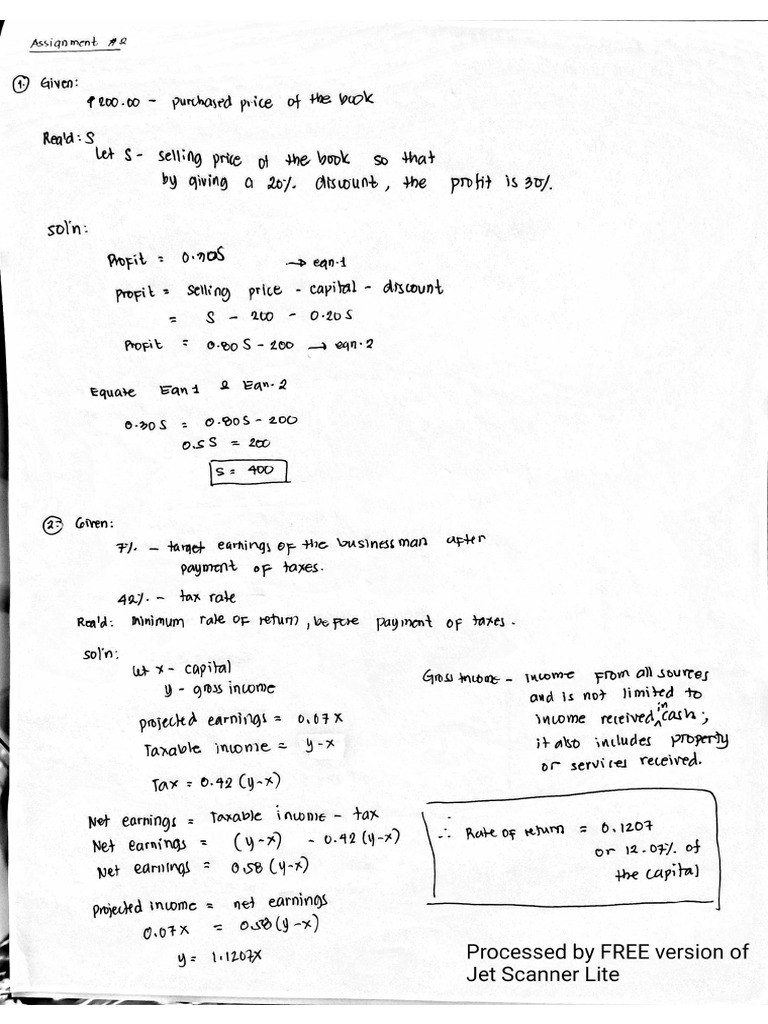 Assignment #2
1. Given:
₱200.00 - purchased price of the book
Req'd: S
Let S - selling price of the book so that
by giving a 20% discount, the profit is 30%.
sol'n:
Profit = 0.30S → eqn.1
Profit = selling price - capital - discount
= S - 200 - 0.20S
Profit = 0.80S - 200 → eqn.2
Equate Eqn 1 & Eqn. 2
0.30S = 0.80S - 200
0.5S = 200
S = 400
2. Given:
7% - target earnings of the businessman after
payment of taxes.
42% - tax rate
Req'd: Minimum rate of return, before payment of taxes.
sol'n:
let x - capital
y - gross income
projected earnings = 0.07x
Taxable income = y-x
Tax = 0.42 (y-x)
Net earnings = Taxable income - tax
Net earnings = (y-x) - 0.42 (y-x)
Net earnings = 0.58 (y-x)
projected income = net earnings
0.07x = 0.58(y-x)
y = 1.1207x
Gross Income - income from all sources
and is not limited to
income received in cash;
it also includes property
or services received.
∴ Rate of return = 0.1207
or 12.07% of
the capital
Processed by FREE version of
Jet Scanner Lite